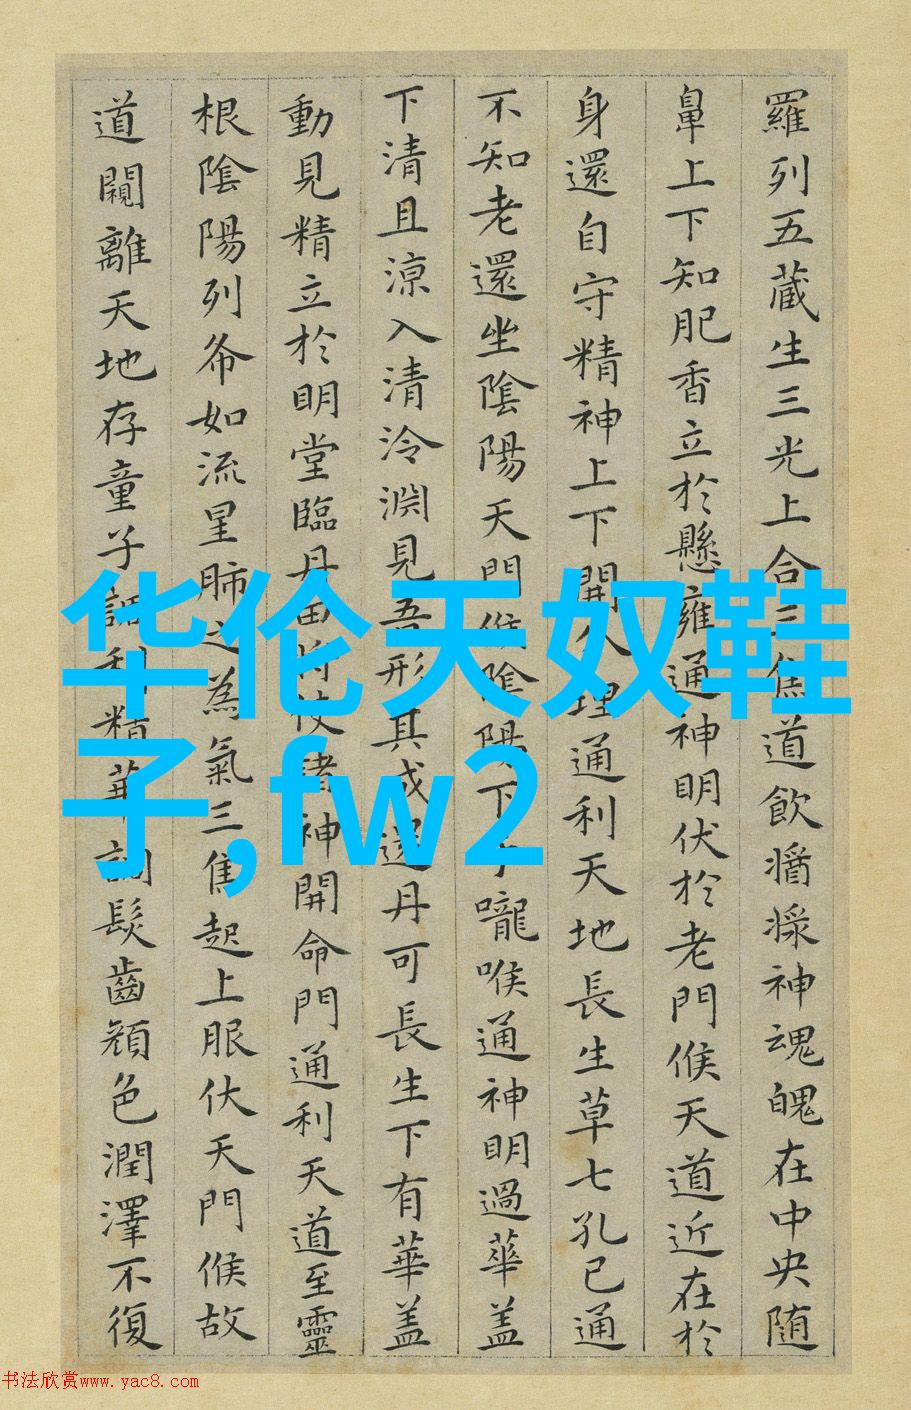 羅列五藏生三光上合三焦道飲醬漿神魂魄在中央随
鼻上下知肥香立於懸雍通神明伏於老門候天道近在於
身還自守精神上下開分理通利天地長生草七孔已通
不知老還坐陰陽天門候陰陽下于嚨喉通神明過華盖
下清且涼入清泠淵見吾形其成還丹可長生下有華盖
動見精立於明堂臨丹田将使諸神開命門通利天道至靈
根陰陽列布如流星肺之為氣三焦起上服伏天門候故
道闚離天地存童子調利精華調髮齒顔色潤澤不復
华伦天奴鞋
子,fw2
书法欣赏www.yac8.com